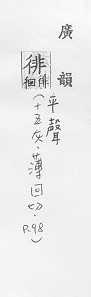 廣韻
徘
徘徊
平聲
(十五灰·薄回切·P.98)